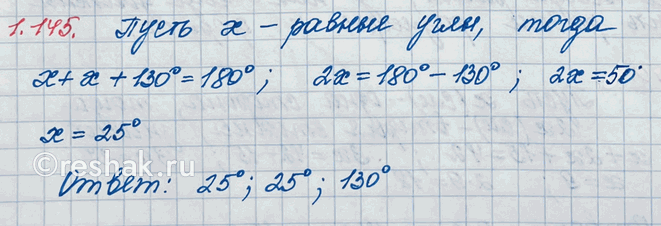 1.145. Пусть x – равные углы, тогда
x + x + 130° = 180° ; 2x = 180° – 130° ; 2x = 50°
x = 25°
Ответ: 25° ; 25° ; 130°
Reshak.ru